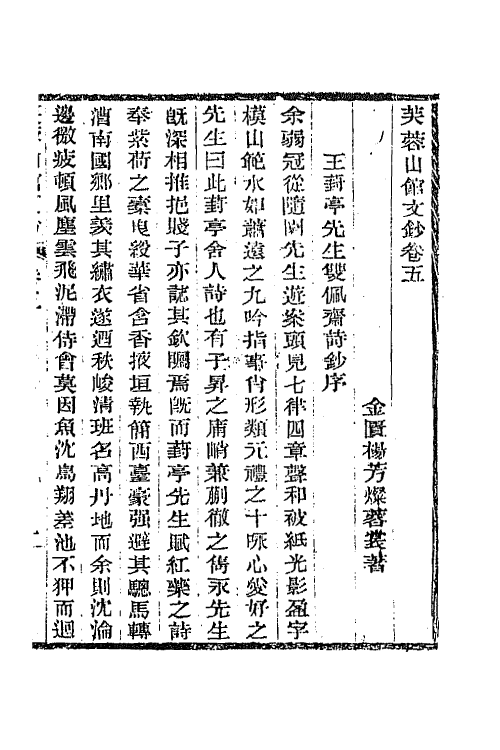 芙蓉山館文鈔卷五
金匱楊芳燦蓉裳著
王葑亭先生雙佩齋詩鈔序
余弱冠從隨園先生遊案頭見七律四章聲和被紙光影盈字
模山範水如蕭遠之九吟指事肖形類元禮之十詠心愛好之
先生曰此葑亭舍人詩也有子昇之庸峭兼蒯徹之雋永先生
旣深相推挹賤子亦誌其欽矚焉旣而葑亭先生賦紅藥之詩
奉紫荷之橐曳縠華省含香掖垣執簡西臺豪强避其驄馬轉
漕南國鄉里羨其繡衣遂迺秩峻清班名高丹地而余則沈淪
邊徼疲頓風塵雲飛泥滯侍會莫因魚沈鳥翔差池不狎而迴